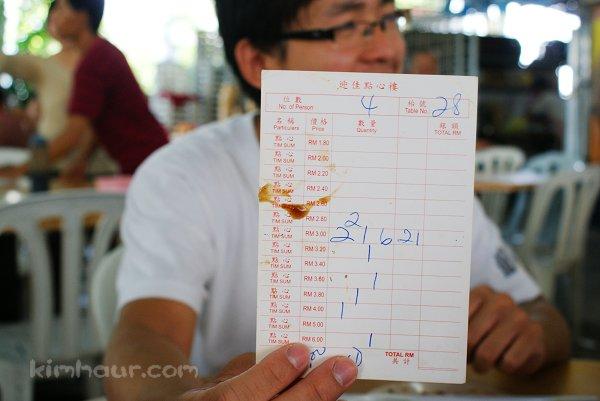 迎佳點心樓
位數 4 枱號 28
No. of Person Table No.
名稱 價格 數量 總額
Particulars Price Quantity TOTAL RM
點心
TIM SUM RM 1.80
點心
TIM SUM RM 2.00
點心
TIM SUM RM 2.20
點心
TIM SUM RM 2.40
點心
TIM SUM
點心
TIM SUM RM 2.80 2
點心
TIM SUM RM 3.00 2 1 6 21
點心
TIM SUM RM 3.20 1
點心
TIM SUM RM 3.40
點心
TIM SUM RM 3.60 1
點心
TIM SUM RM 3.80 1
點心
TIM SUM RM 4.00 1
點心
TIM SUM RM 5.00
點心
TIM SUM RM 6.00 1
TOTAL RM
共計
kimhaur.com